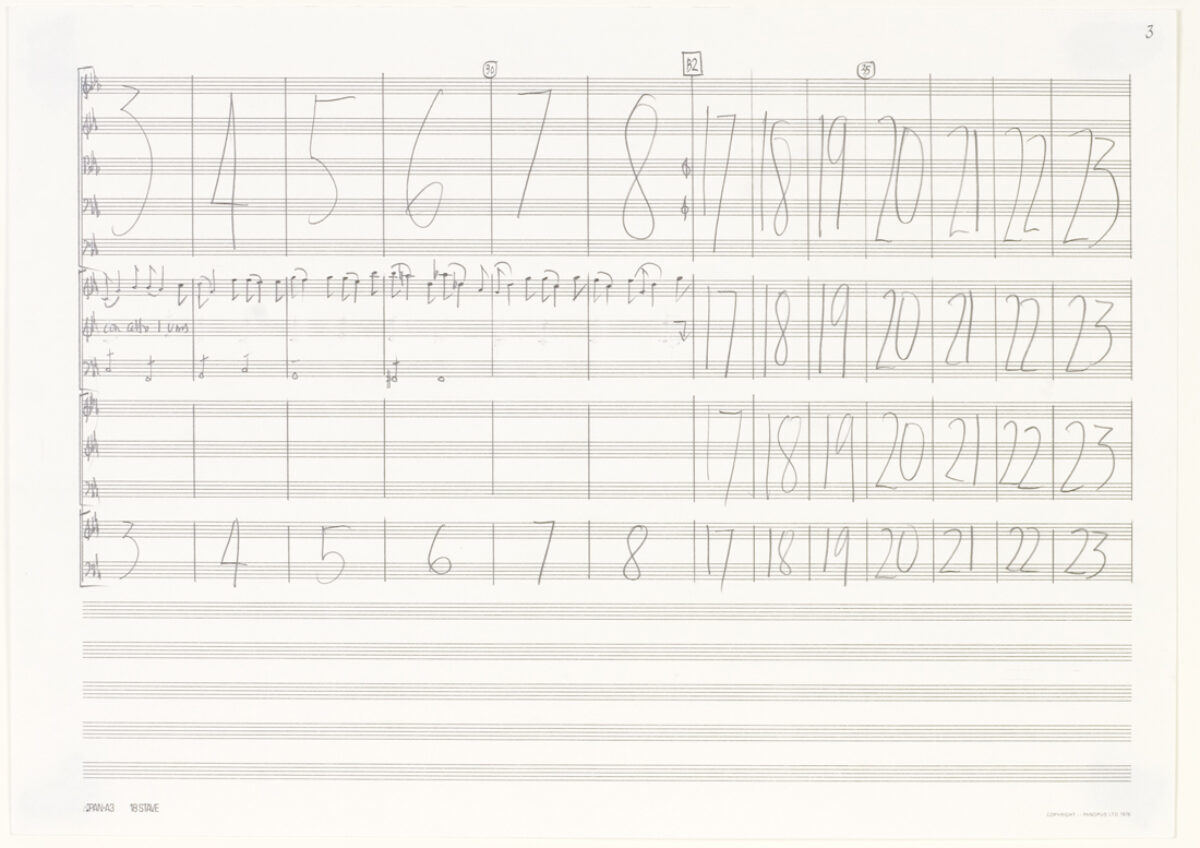 3
30 B2 35
3 4 5 6 7 8 17 18 19 20 21 22 23
17 18 19 20 21 22 23
17 18 19 20 21 22 23
3 4 5 6 7 8 17 18 19 20 21 22 23
18 STAVE
COPYRIGHT PANOPUS LTD 1976